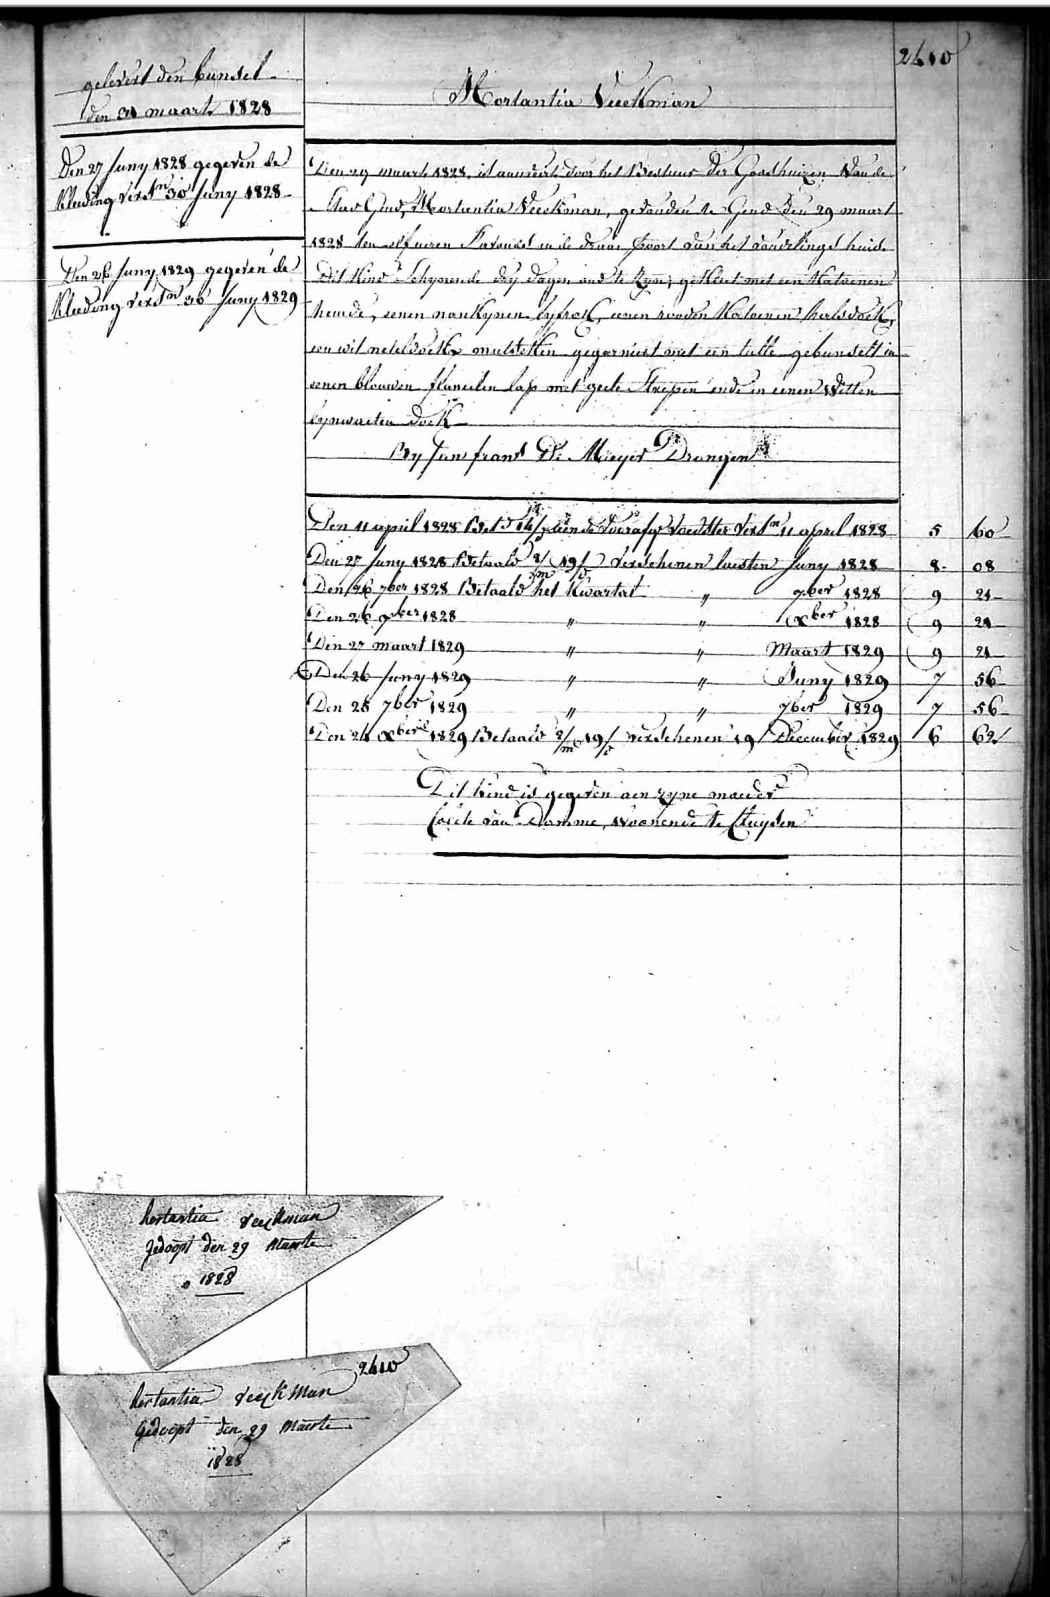 2410
gelevert den bunsel
den 31 maart 1828
Den 27 Juny 1828 gegeven de
Kleeding verstn 30 Juny 1828
Den 26 Juny 1829 gegeven de
Kleeding verstn 30 Juny 1829
Hortantia Veeckman
Den 29 maart 1828, is aanveert door het Bestuur der Godshuizen van de
Stad Gend, Hortantia Veeckman, gevonden te Gend den 29 maart
1828 ten elf uren s'avonds in de draai poort van het vondelingen huis.
Dit Kind schynende dry dagen oud te zyn; gekleet met een Katoenen
hemde, eenen nankynen lyfrok, eenen rooden Katoenen halsdoek,
een wit neteldoekx mutsken gegarniert met een tulle gebunselt in
eenen blauwen flanellen lap met geele streepen ende in eenen witten
lynwaeten doek
By Jan frans De Meyer Drongen
Den 11 april 1828 Bet. verstn 11 april 1828 5 60
Den 27 Juny 1828 Betaald 2/m 19/d verschenen laesten Juny 1828 8 08
Den 26 7ber 1828 Betaald het Kwartal " 7ber 1828 9 21
Den 26 xber 1828 " " xber 1828 9 21
Den 27 maart 1829 " " Maart 1829 9 21
Den 26 Juny 1829 " " Juny 1829 7 56
Den 25 7ber 1829 " " 7ber 1829 7 56
Den 24 xber 1829 Betaald 2/m 19/d verschenen 19 December 1829 6 62
Dit kind is gegeven aen zyne moeder
Cecile van Damme, woonende te Cluysen
hortantia veeckman
Gedoopt den 29 Maerte
1828
2410
hortantia veeckman
Gedoopt den 29 Maerte
1828